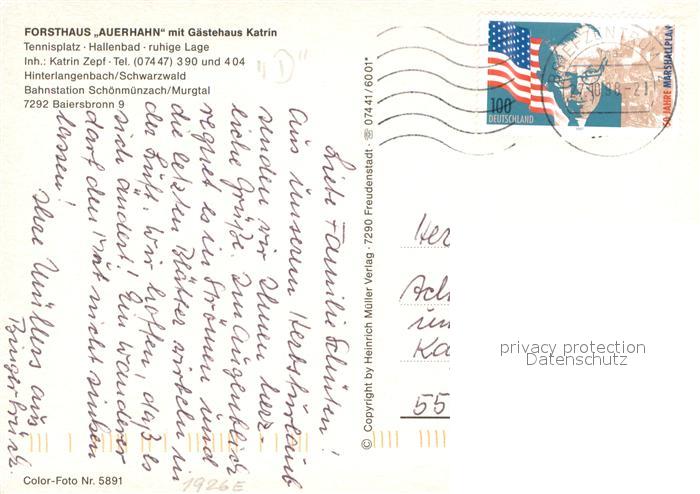 FORSTHAUS „AUERHAHN" mit Gästehaus Katrin
Tennisplatz · Hallenbad · ruhige Lage
Inh.: Katrin Zepf · Tel. (07447) 390 und 404
Hinterlangenbach/Schwarzwald
Bahnstation Schönmünzach/Murgtal
7292 Baiersbronn 9
"D"
Liebe Familie Schüten!
Aus unserem Herbsturlaub
senden wir Ihnen herz-
liche Grüße. Im Augenblick
regnet es in Strömen und
die letzten Blätter wirbeln in
der Luft. Wir hoffen, daß es
sich ändert! Ein Wanderer
darf den Mut nicht sinken
lassen!
Ihre Müllers aus
Bingerbrück.
© Copyright by Heinrich Müller Verlag · 7290 Freudenstadt · ☏ 07441/6001*
100
DEUTSCHLAND
50 JAHRE MARSHALLPLAN
1997
BRIEFZENTRUM
98-21
Her
Ach
un
Ka
55
privacy protection
Datenschutz
Color-Foto Nr. 5891
1926E